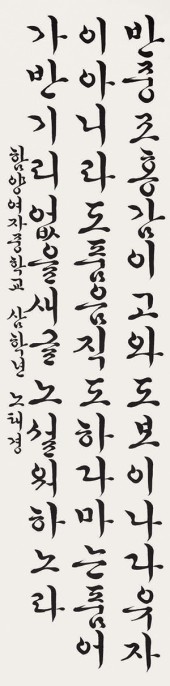 반중 조홍감이 고와도 보이나다 유자
이 아니라도 품음직도 하다마는 품어
가 반기리 없을새 글노 설워하노라
함양여자중학교 삼학년